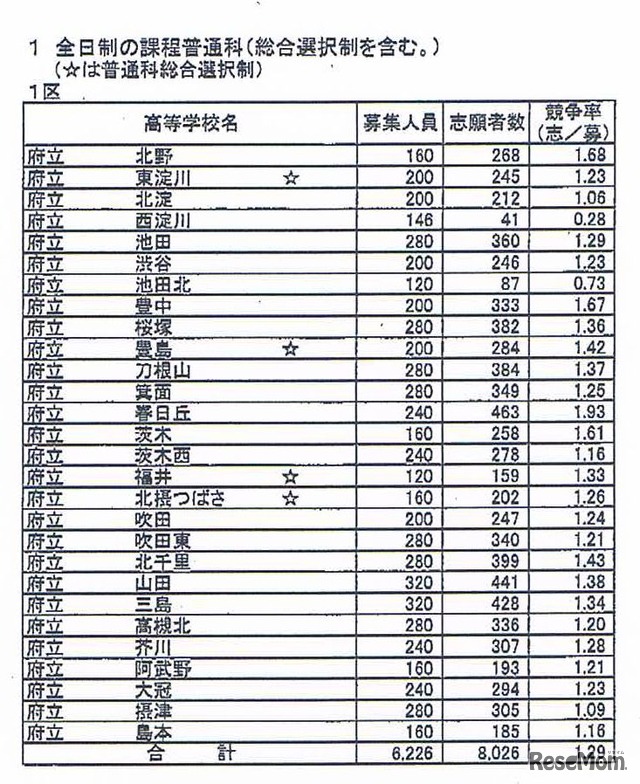 1 全日制の課程普通科(総合選択制を含む。)
(☆は普通科総合選択制)
1区
高等学校名 募集人員 志願者数 競争率(志/募)
府立 北野 160 268 1.68
府立 東淀川 ☆ 200 245 1.23
府立 北淀 200 212 1.06
府立 西淀川 146 41 0.28
府立 池田 280 360 1.29
府立 渋谷 200 246 1.23
府立 池田北 120 87 0.73
府立 豊中 200 333 1.67
府立 桜塚 280 382 1.36
府立 豊島 ☆ 200 284 1.42
府立 刀根山 280 384 1.37
府立 箕面 280 349 1.25
府立 春日丘 240 463 1.93
府立 茨木 160 258 1.61
府立 茨木西 240 278 1.16
府立 福井 ☆ 120 159 1.33
府立 北摂つばさ ☆ 160 202 1.26
府立 吹田 200 247 1.24
府立 吹田東 280 340 1.21
府立 北千里 280 399 1.43
府立 山田 320 441 1.38
府立 三島 320 428 1.34
府立 高槻北 280 336 1.20
府立 芥川 240 307 1.28
府立 阿武野 160 193 1.21
府立 大冠 240 294 1.23
府立 摂津 280 305 1.09
府立 島本 160 185 1.16
合計 6,226 8,026 1.29
ReseMom